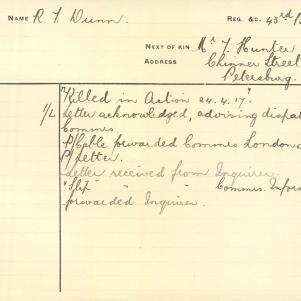 NAME R. T. Dunn. REG. &C. 43rd
NEXT OF KIN Mr T. Hunter
ADDRESS Chinner Street
Petersburg.
"Killed in Action 24.4.17".
1/L Letter acknowledged, advising dispat
Commrs
P/Cable forwarded Commrs London
P/Letter.
Letter received from Inquirer.
"Slip " " Commrs. Inform
forwarded Inquirer.